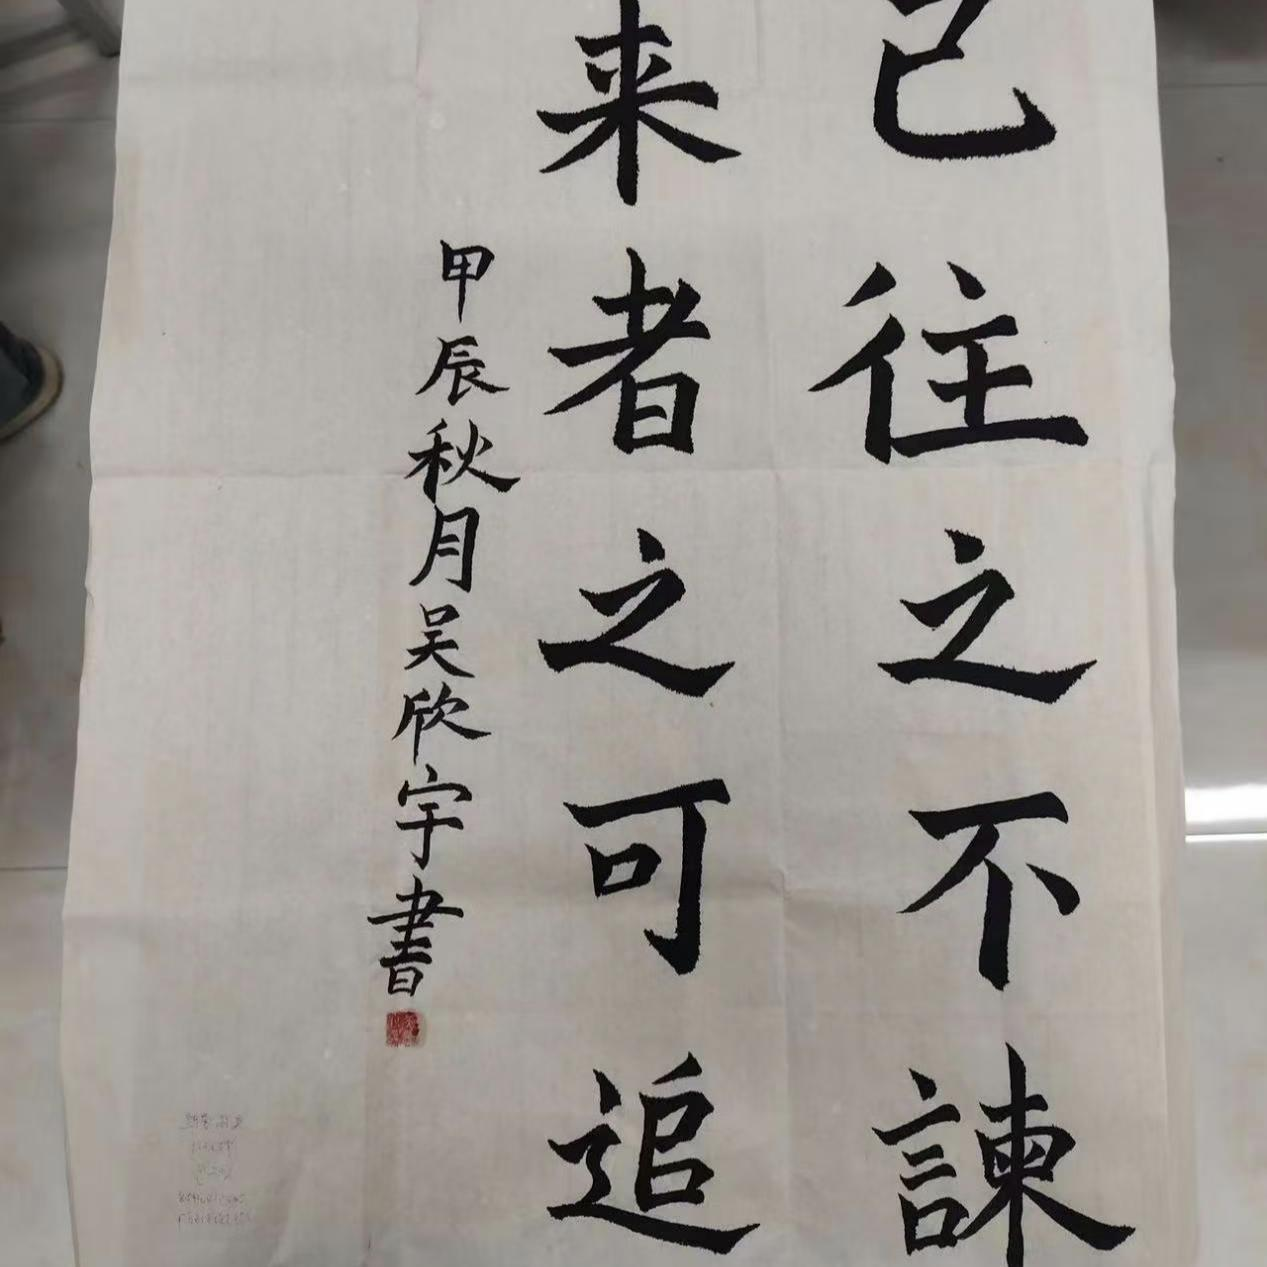 已往之不諫
来者之可追
甲辰秋月吴欣宇書